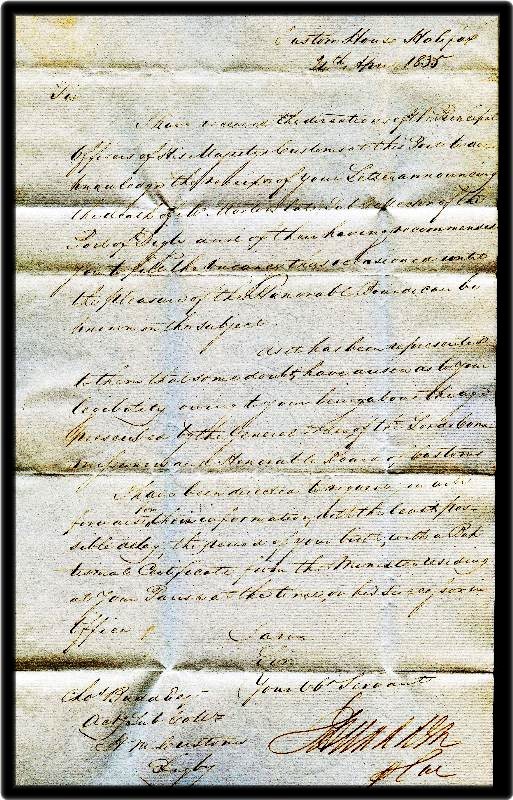 Custom House Halifax
4th April 1835
Sir
I have received the directions of the Principal
Officers of His Majestys Customs at this Port to ac-
knowledge the receipt of your Letter announcing
the death of Mr late Sub Collector of the
Port of Digby and of their having recommended
you to fill the Vacancy thus occasioned until
the pleasure of the Honorable Board can be
known on the subject.
As it has been represented
to them that some doubts have arisen as to your
eligibility owing to your being above the age
prescribed by the General Order of the Lords Com-
missioners and Honorable Board of Customs
I have been directed to require you will
forward for their information, with the least pos-
sible delay, the period of your birth, with a
Certificate from the Minister residing
at your Parish at the time, on his for
Office
I am
Sir
Your Obt Servant
Chas Budd Esq
Act Sub Collr
H. M. Customs
Digby